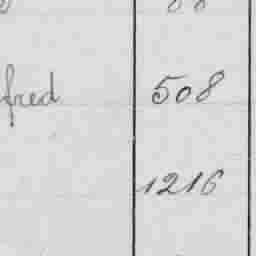 fred 508
1216